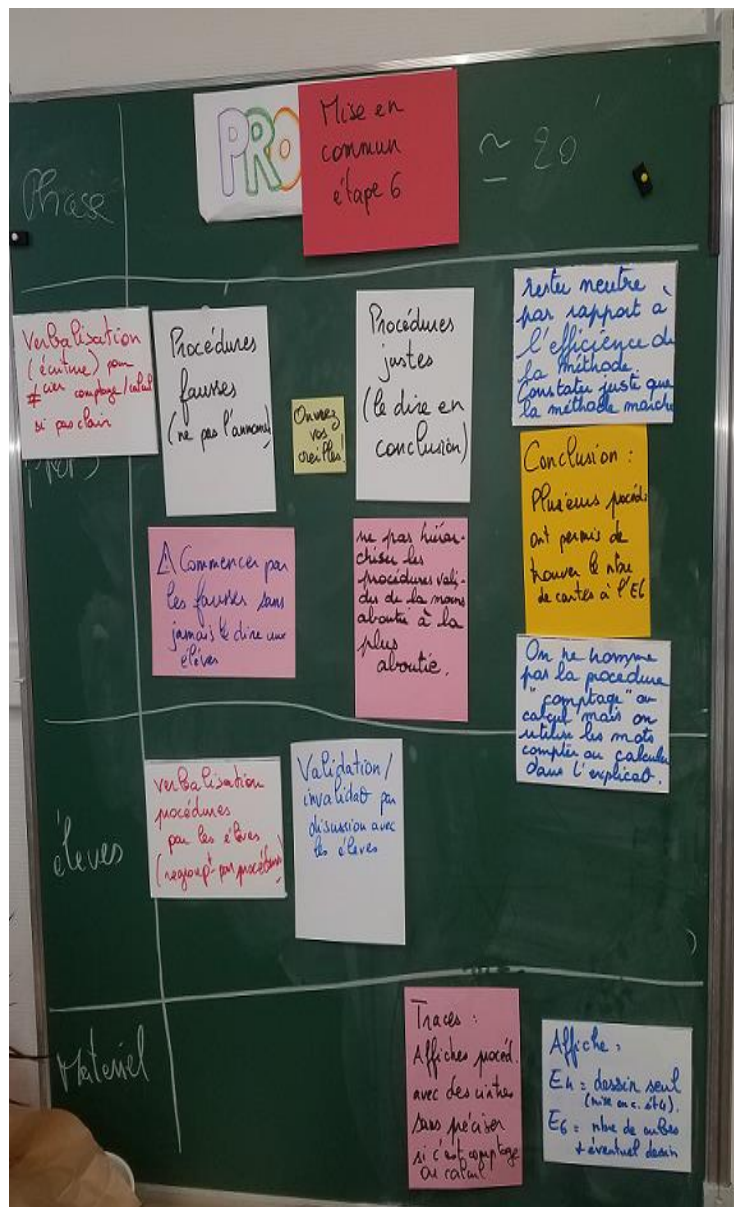 Phase
PRO
Mise en
commun
étape 6
≃ 20'
Verbalisation
(écriture) pour
≠cier comptage/calcul
si pas clair
Procédures
fausses
(ne pas l'annoncer)
Ouvrez
vos
oreilles!
Procédures
justes
(le dire en
conclusion)
rester neutre
par rapport à
l'efficience de
la méthode.
Constater juste que
la méthode marche
⚠ Commencer par
les fausses sans
jamais le dire aux
élèves
ne pas hiérar-
chiser les
procédures vali-
des de la moins
aboutie à la
plus
aboutie.
Conclusion :
Plusieurs procéd.
ont permis de
trouver le nbre
de cartes à l'E6
On ne nomme
pas la procédure
"comptage" ou
calcul mais on
utilise les mots
compter ou calculer
dans l'explicat.
élèves
verbalisation
procédures
par les élèves
(regroupt par procédures)
Validation/
invalidat par
discussion avec
les élèves
Matériel
Traces :
Affiches procéd.
avec des
sans préciser
si c'est comptage
ou calcul
Affiche :
E4 = dessin seul
(mise en c. ét4).
E6 = nbre de cubes
+ éventuel dessin